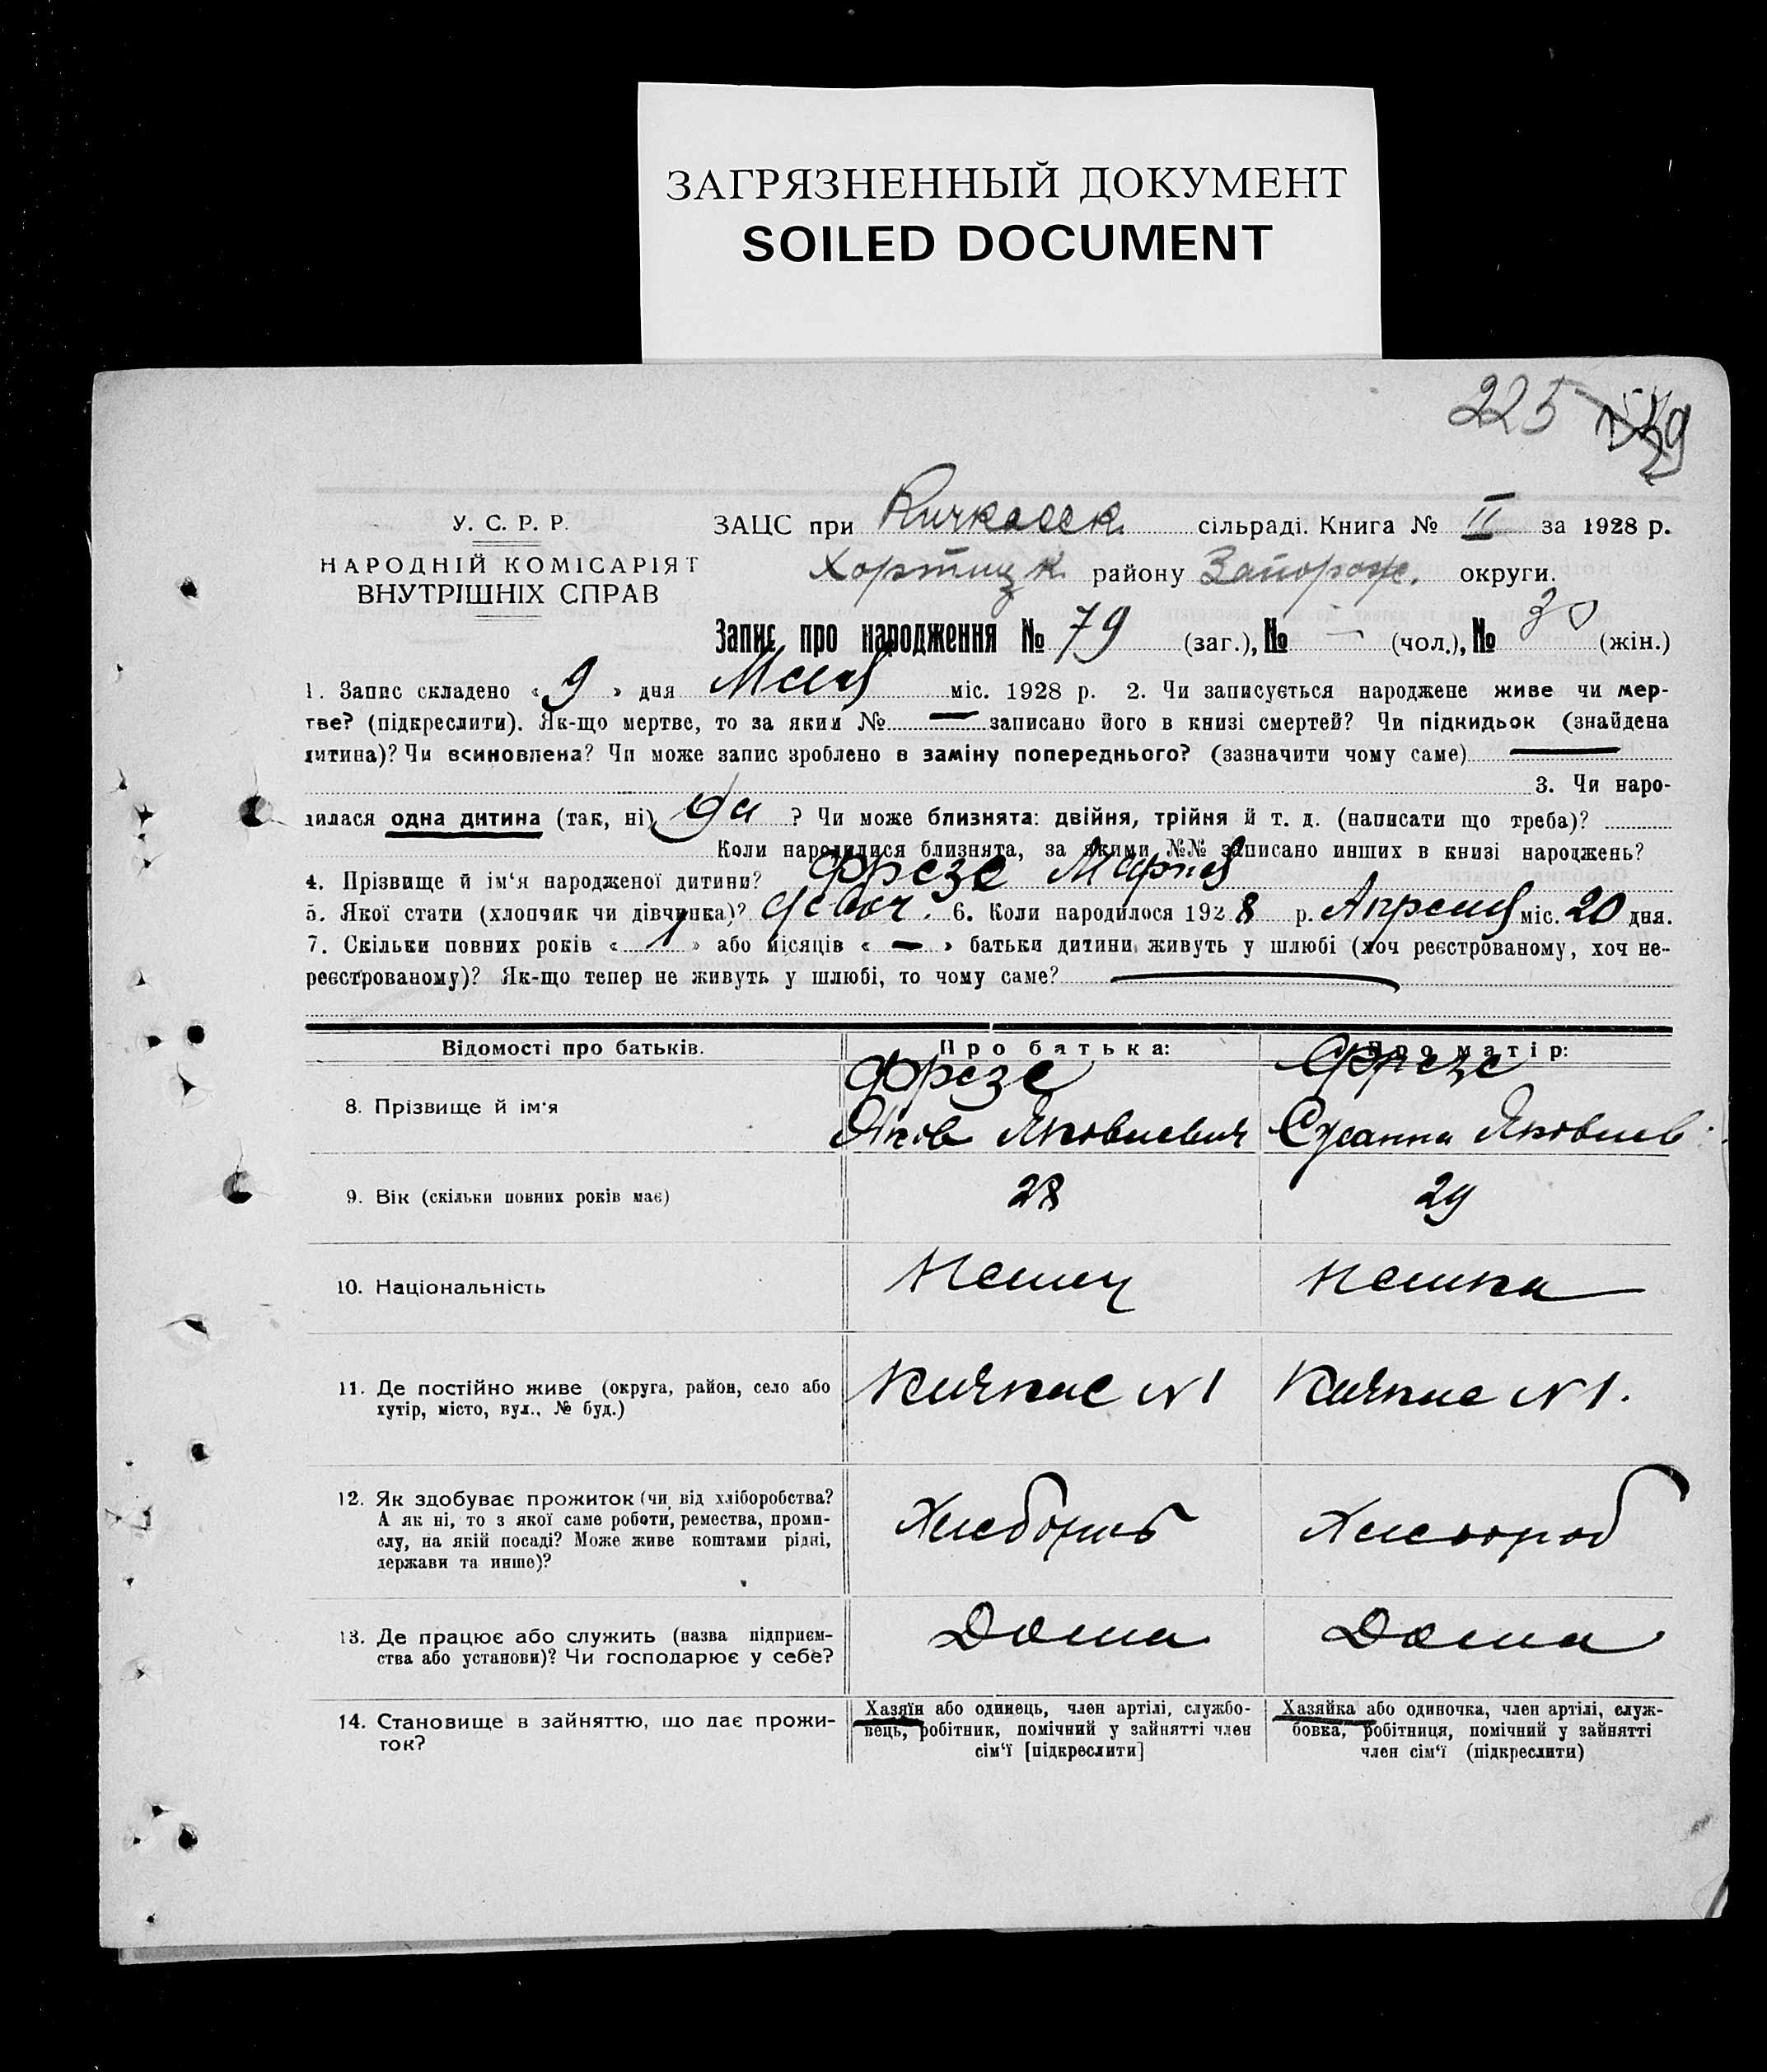 ЗАГРЯЗНЕННЫЙ ДОКУМЕНТ
SOILED DOCUMENT
225
У. С. Р. Р.
НАРОДНІЙ КОМІСАРІЯТ
ВНУТРІШНІХ СПРАВ
ЗАЦС при Кичкасск. сільраді. Книга № II за 1928 р.
Хортицк. району Запорож. округи.
Запис про народження № 79 (заг.), № — (чол.), № 30 (жін.)
1. Запис складено « 9 » дня Мая міс. 1928 р. 2. Чи записується народжене живе чи мер-
тве? (підкреслити). Як-що мертве, то за яким № — записано його в книзі смертей? Чи підкидьок (знайдена
дитина)? Чи всиновлена? Чи може запис зроблено в заміну попереднього? (зазначити чому саме) —
3. Чи наро-
дилася одна дитина (так, ні) да ? Чи може близнята: двійня, трійня й т. д. (написати що треба)?
Коли народилися близнята, за якими №№ записано инших в книзі народжень?
4. Прізвище й ім‘я народженої дитини? Фрезе Мария
5. Якої стати (хлопчик чи дівчинка)? девоч. 6. Коли народилося 1928 р. Апреля міс. 20 дня.
7. Скільки повних років « 1 » або місяців « — » батьки дитини живуть у шлюбі (хоч реєстрованому, хоч не-
реєстрованому)? Як-що тепер не живуть у шлюбі, то чому саме? —
Відомості про батьків. Про батька: Про матір:
Фрезе Фрезе
8. Прізвище й ім‘я Яков Яковлевич Сусанна Яковлев.
9. Вік (скільки повних років має) 28 29
10. Національність Немец Немка
11. Де постійно живе (округа, район, село або
хутір, місто, вул., № буд.) Кичкас N 1 Кичкас N 1.
12. Як здобуває прожиток (чи від хліборобства?
А як ні, то з якої саме роботи, ремества, проми-
слу, на якій посаді? Може живе коштами рідні,
держави та инше)? Хлебороб Хлебороб
13. Де працює або служить (назва підприєм-
ства або установи)? Чи господарює у себе? Дома Дома
14. Становище в зайняттю, що дає прожи-
ток?
Хазяїн або одинець, член артілі, службо-
вець, робітник, помічний у зайнятті член
сім‘ї [підкреслити]
Хазяйка або одиночка, член артілі, служ-
бовка, робітниця, помічний у зайнятті
член сім‘ї (підкреслити)